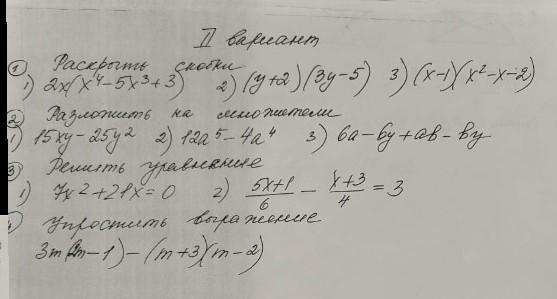 II вариант
① Раскрыть скобки
1) 2x(x⁴-5x³+3) 2) (y+2)(3y-5) 3) (x-1)(x²-x-2)
② Разложить на множители
1) 15xy-25y² 2) 12a⁵-4a⁴ 3) 6a-6y+ab-by
③ Решить уравнение
1) 7x²+21x=0 2) (5x+1)/6 - (x+3)/4 = 3
4 Упростить выражение
3m(2m-1)-(m+3)(m-2)